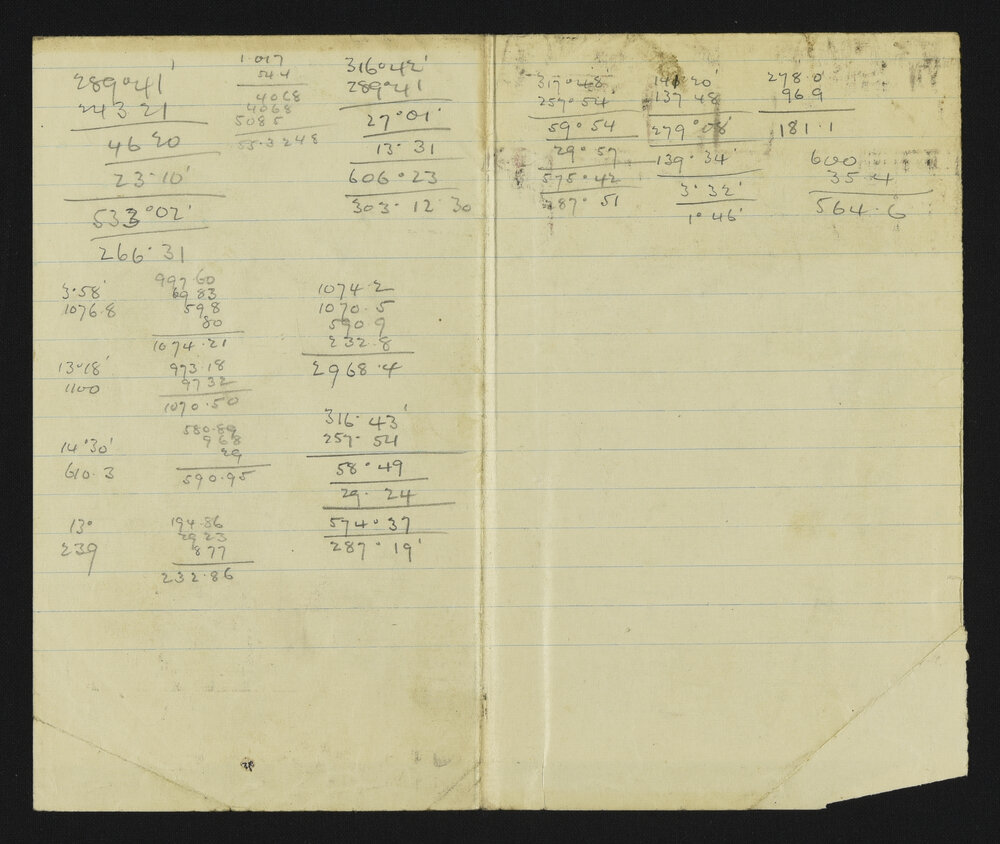 289°41'
243 21
46 20
23·10'
533°02'
266·31
1 017
544
4068
4068
5085
55·3248
316°42'
289°41'
27°01'
13·31
606°23
303·12·30
3·58'
1076·8
997·60
69 83
598
80
1074·21
13°18'
1100
973·18
97 32
1070·50
14°30'
610·3
580·89
968
29
590·95
13°
239
194·86
29 23
877
232·86
1074·2
1070·5
590 9
232·8
2968·4
316·43'
257·54
58°49
29·24
574°37
287°19'
317°48'
257°54'
59°54
29°57
575°42
287°51
141°20'
137 48
279°08'
139°34'
3°32'
1°46'
278·0
96 9
181·1
600
35 4
564·6